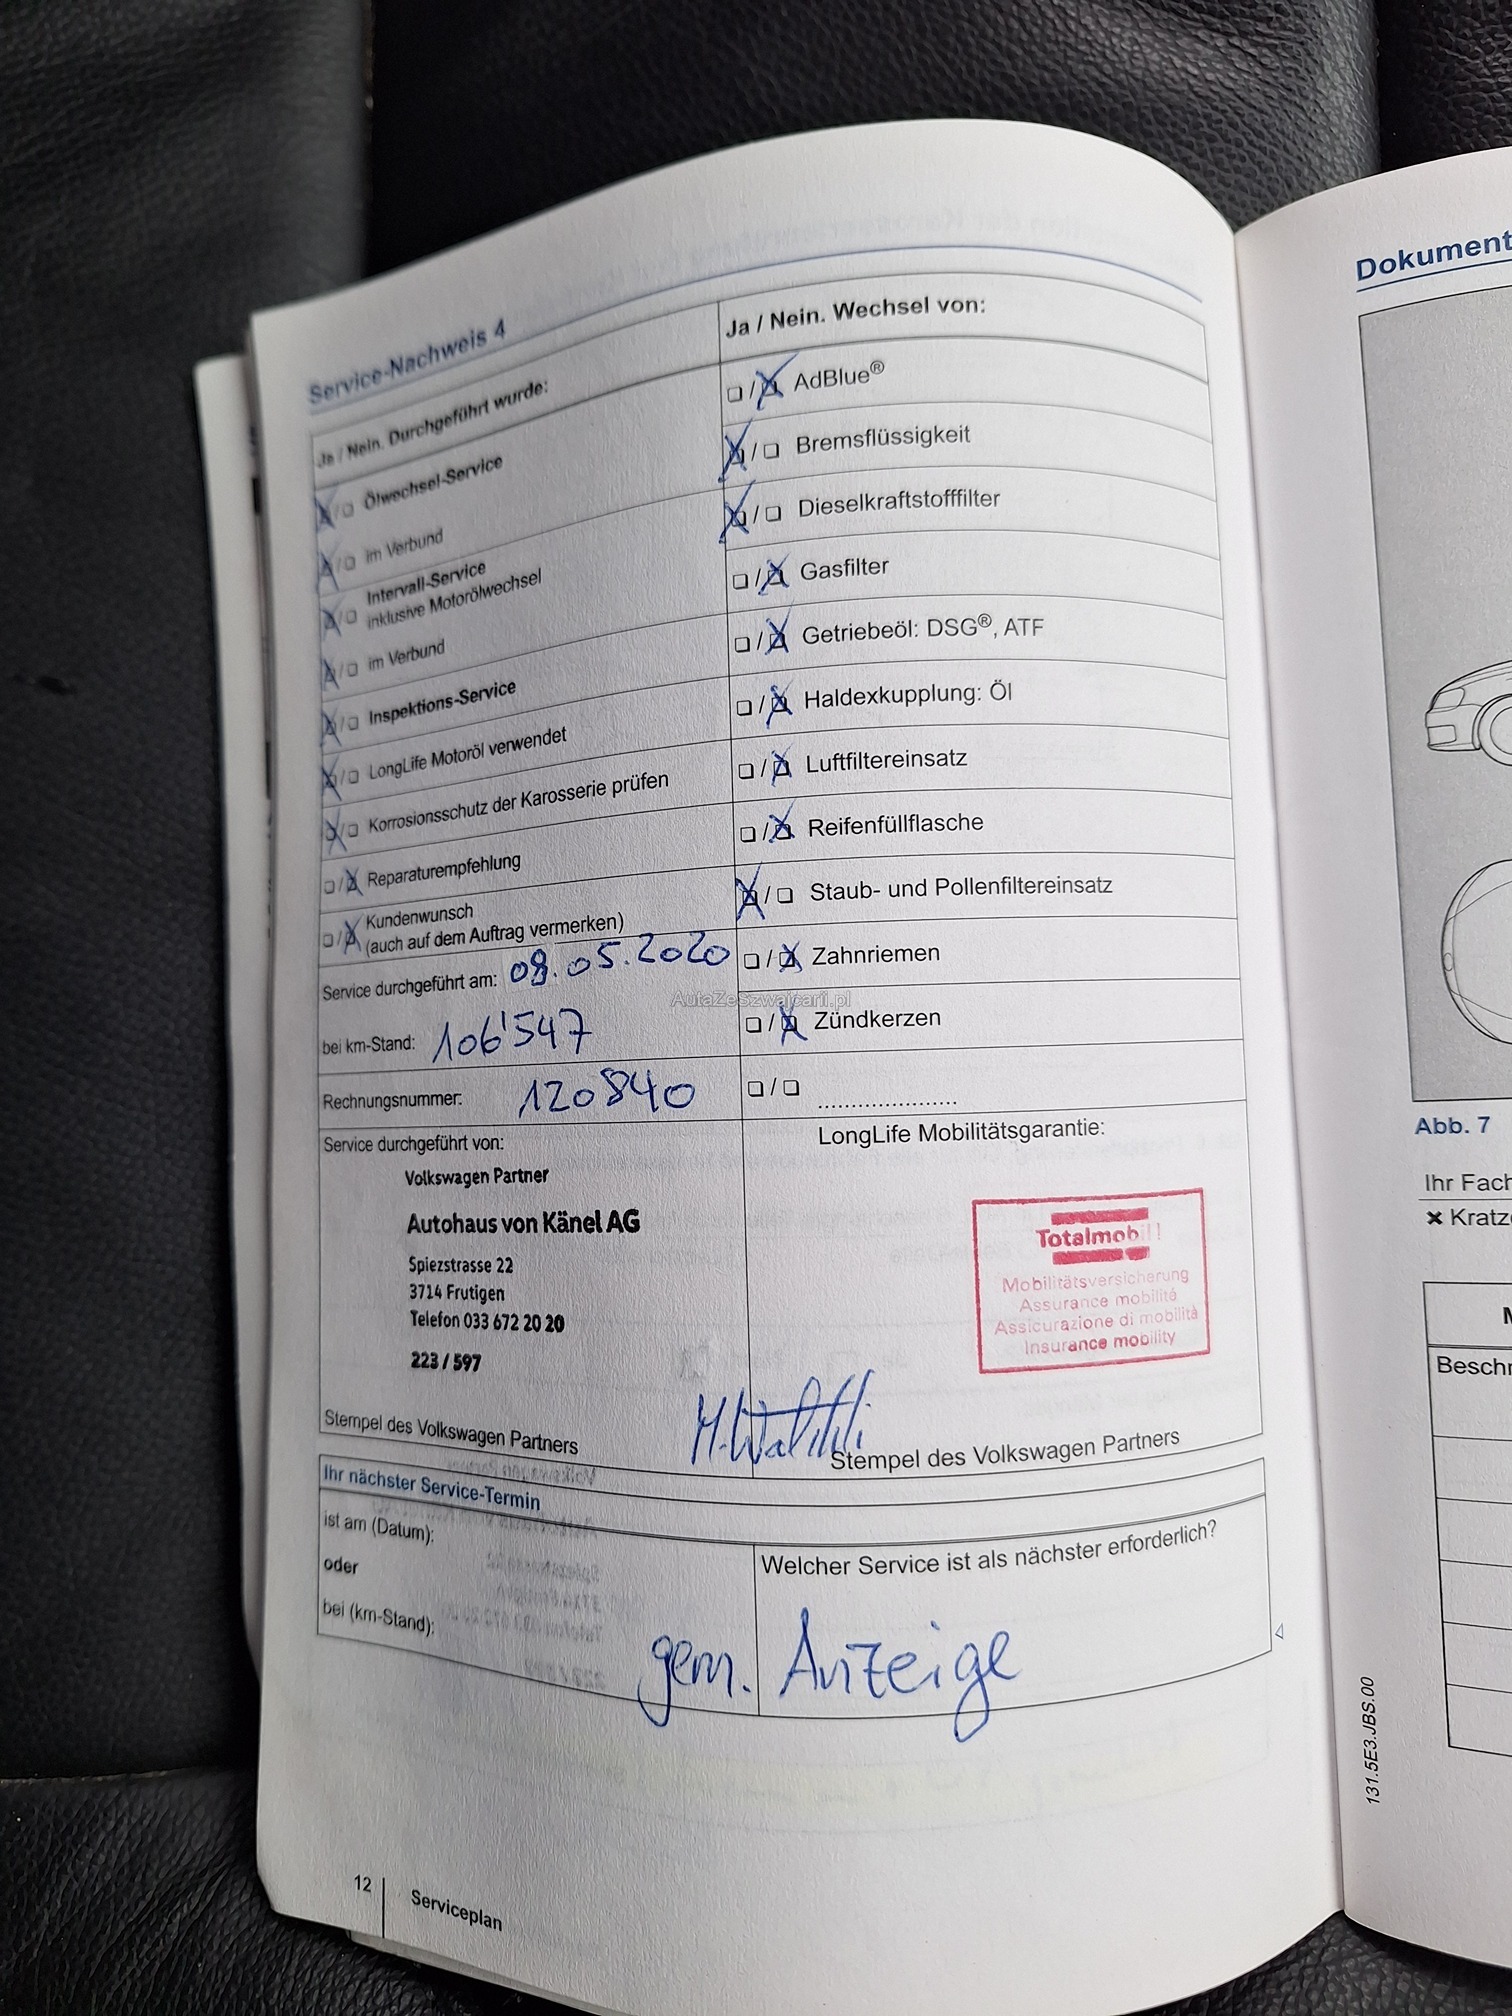 Service-Nachweis 4
Ja / Nein. Durchgeführt wurde:
Ölwechsel-Service
im Verbund
Intervall-Service
inklusive Motorölwechsel
im Verbund
Inspektions-Service
LongLife Motoröl verwendet
Korrosionsschutz der Karosserie prüfen
Reparaturempfehlung
Kundenwunsch
(auch auf dem Auftrag vermerken)
Service durchgeführt am: 08.05.2020
bei km-Stand: 106'547
Rechnungsnummer: 120840
Ja / Nein. Wechsel von:
AdBlue®
Bremsflüssigkeit
Dieselkraftstofffilter
Gasfilter
Getriebeöl: DSG®, ATF
Haldexkupplung: Öl
Luftfiltereinsatz
Reifenfüllflasche
Staub- und Pollenfiltereinsatz
Zahnriemen
Zündkerzen
AutaZeSzwajcarii.pl
Service durchgeführt von:
Volkswagen Partner
Autohaus von Känel AG
Spiezstrasse 22
3714 Frutigen
Telefon 033 672 20 20
223 / 597
Stempel des Volkswagen Partners
LongLife Mobilitätsgarantie:
Totalmobil!
Mobilitätsversicherung
Assurance mobilité
Assicurazione di mobilità
Insurance mobility
Stempel des Volkswagen Partners
Ihr nächster Service-Termin
ist am (Datum):
oder
bei (km-Stand):
Welcher Service ist als nächster erforderlich?
gem. Anzeige
12
Serviceplan
Dokument
Abb. 7
Ihr Fach
Kratz
Besch
131.5E3.JBS.00